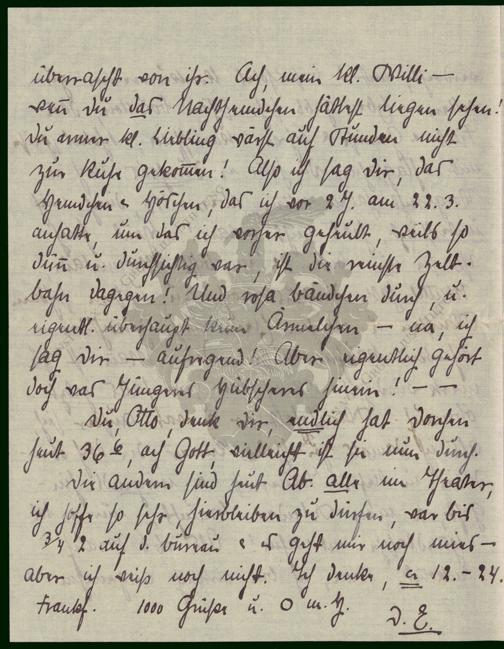 überrascht von ihr. Ach, mein kl. Willi —
wenn du das Nachthemdchen hättest liegen sehen!
du armer kl. Liebling wärst auf Stunden nicht
zur Ruhe gekommen! Also ich sag dir, das
Hemdchen & Höschen, das ich vor 2 J. am 22. 3.
anhatte, um das ich vorher geheult, weils so
dünn u. durchsichtig war, ist die reinste Zelt-
bahn dagegen! Und rosa bändchen durch u.
eigentl. überhaupt keine Ärmelchen — na, ich
sag dir — aufregend! Aber eigentlich gehört
doch was Jüngeres Hübscheres hinein! — —
Du, Otto, denk dir, endlich hat Dorchen
heut 36⁶, ach Gott, vielleicht ist sie nun durch.
Die andern sind heut Ab. alle im Theater,
ich hoffe so sehr, hierbleiben zu dürfen, war bis
3/4 2 auf d. bureau & es geht mir noch mies —
aber ich weiß noch nicht. Ich denke, ca 12. – 24.
Frankf. 1000 Grüße u. O m. H.
D. E.